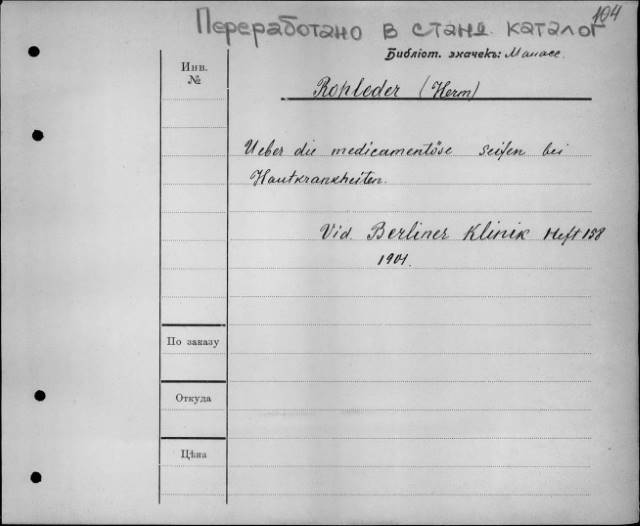 104
Переработано в станд. каталог
Библіот. значекъ: Манасс.
Инв.
№
Rohleder (Herm)
Ueber die medicamentöse Seifen bei
Hautkrankheiten.
Vid. Berliner Klinik Heft 158
1901.
По заказу
Откуда
Цѣна